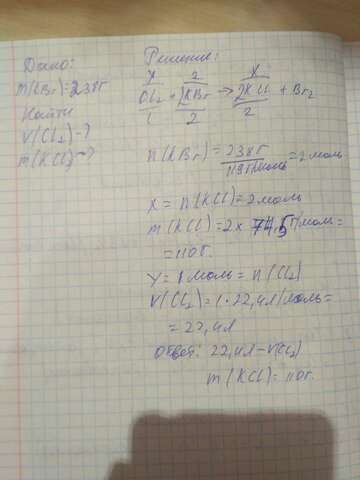 Дано:
m(KBr)=238г
Найти
V(Cl₂)-?
m(KCl)-?
Решение:
y 2 x
Cl₂ + 2KBr → 2KCl + Br₂
1 2 2
n(KBr) = 238г / 119г/моль = 2моль
x = n(KCl) = 2моль
m(KCl) = 2 x 74,5г/моль =
= 110г.
y = 1 моль = n(Cl₂)
V(Cl₂) = 1 · 22,4л/моль =
= 22,4л
Ответ: 22,4л - V(Cl₂)
m(KCl) = 110г.